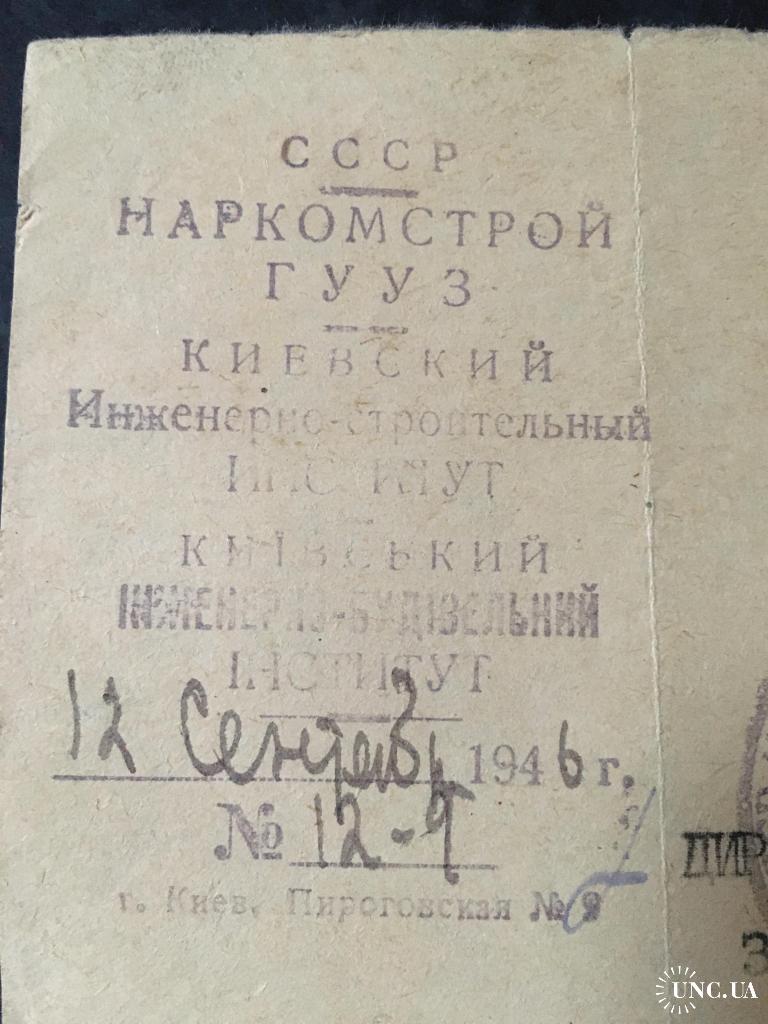 СССР
НАРКОМСТРОЙ
ГУУЗ
КИЕВСКИЙ
Инженерно-строительный
ИНСТИТУТ
КИЇВСЬКИЙ
ІНЖЕНЕРНО-БУДІВЕЛЬНИЙ
ІНСТИТУТ
12 Сентябр 1946 г.
№ 12-9
г. Киев, Пироговская № 9
ДИР
З
UNC.UA